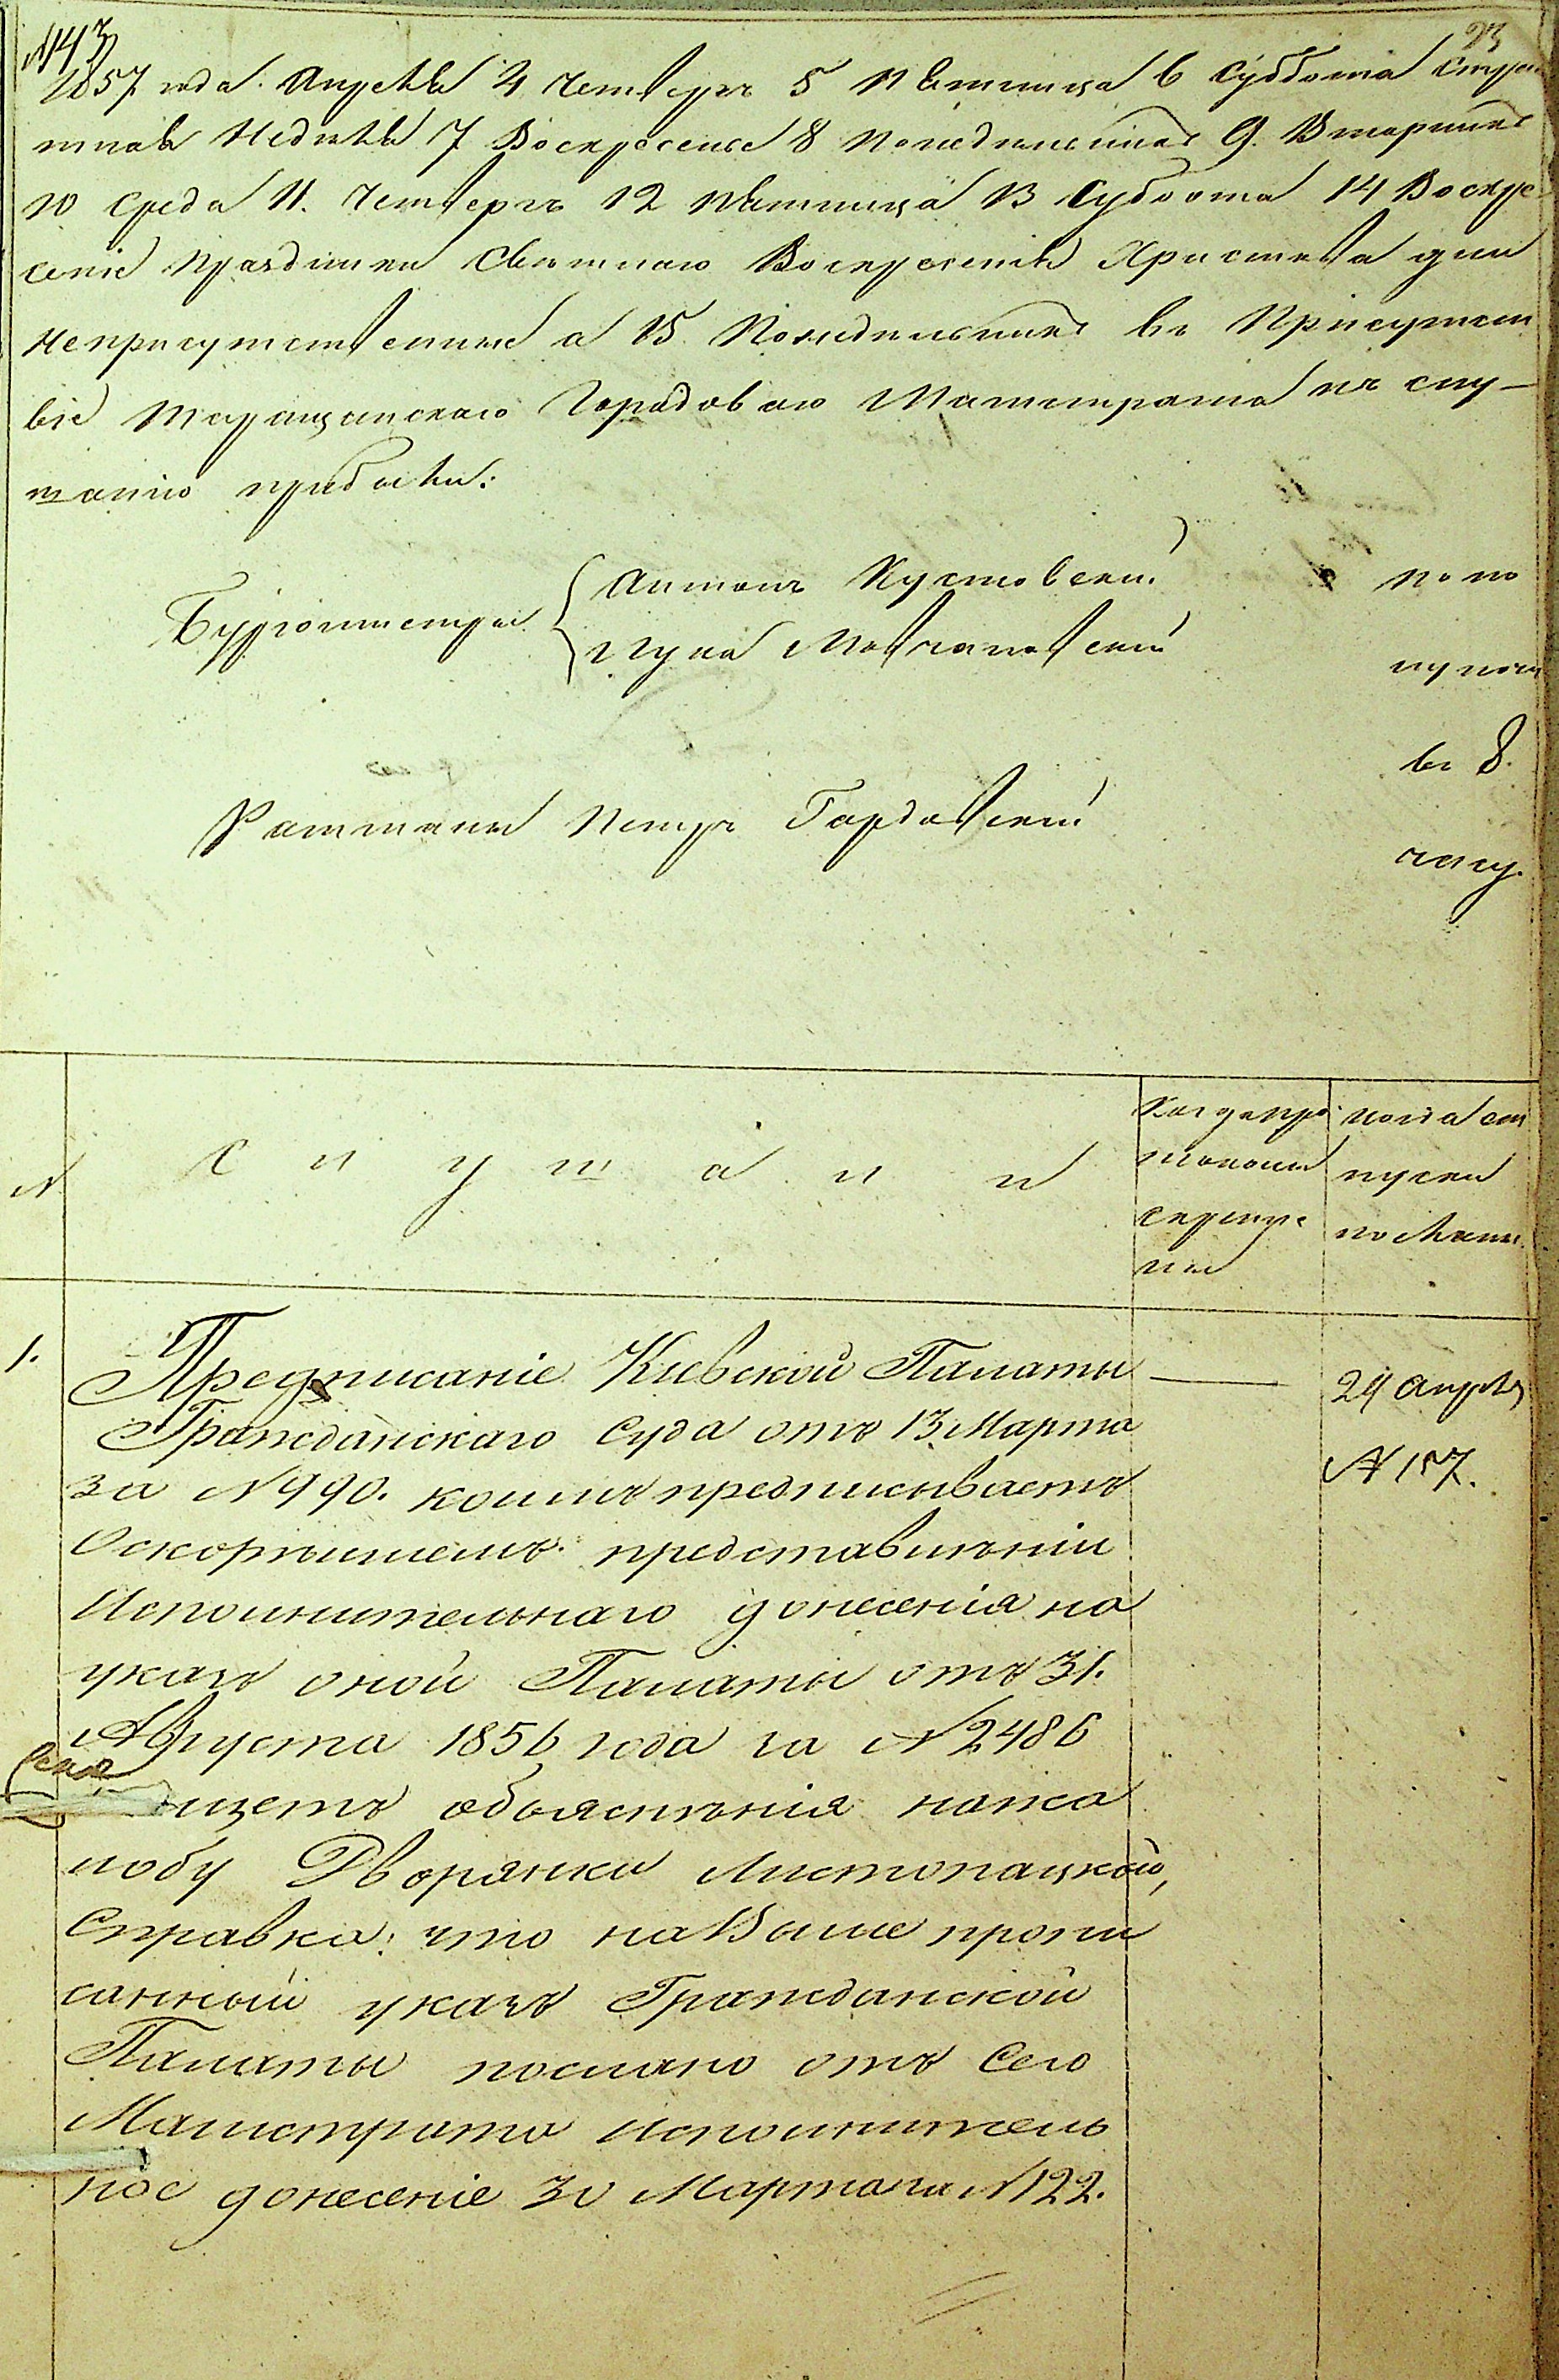 №43
23
1857 года. Апреля 4 Четвергъ 5 Пятница 6 Суббота Страс
тная Неделя 7 Воскресенье 8 Понедельникъ 9. Вторникъ
10 Среда 11. Четвергъ 12 Пятница 13 Суббота 14 Воскре
сеніе праздники Светлаго Воскресенія Христова дни
неприсутственные а 15 Понедельникъ въ Присутст
віе Таращанскаго Городоваго Магистрата къ слу-
шанію прибыли:
Бургомистры
Антонъ Кустовскій
Лука Молчановскій
по по
луноч
въ 8.
часу.
Ратманъ Петръ Гордовскій
№
С л у ш а л и
Когда про
токолы
скрепле
ны
когда от
пуски
посланы
1.
Предписаніе Кіевской Палаты
24 апреля
Гражданскаго Суда отъ 13 Марта
№ 157.
за №990. коимъ предписываетъ
Оскорѣйшемъ представленіи
Исполнительнаго донесенія на
указъ оной Палаты отъ 31.
Августа 1856 года за №2486
объясненія нажа
лобу Дворянки Листопацкой,
Справка: что навыше пропи
санный указъ Гражданской
Палаты послано отъ сего
Магистрата Исполнитель
ное донесеніе 30 Марта за №122.